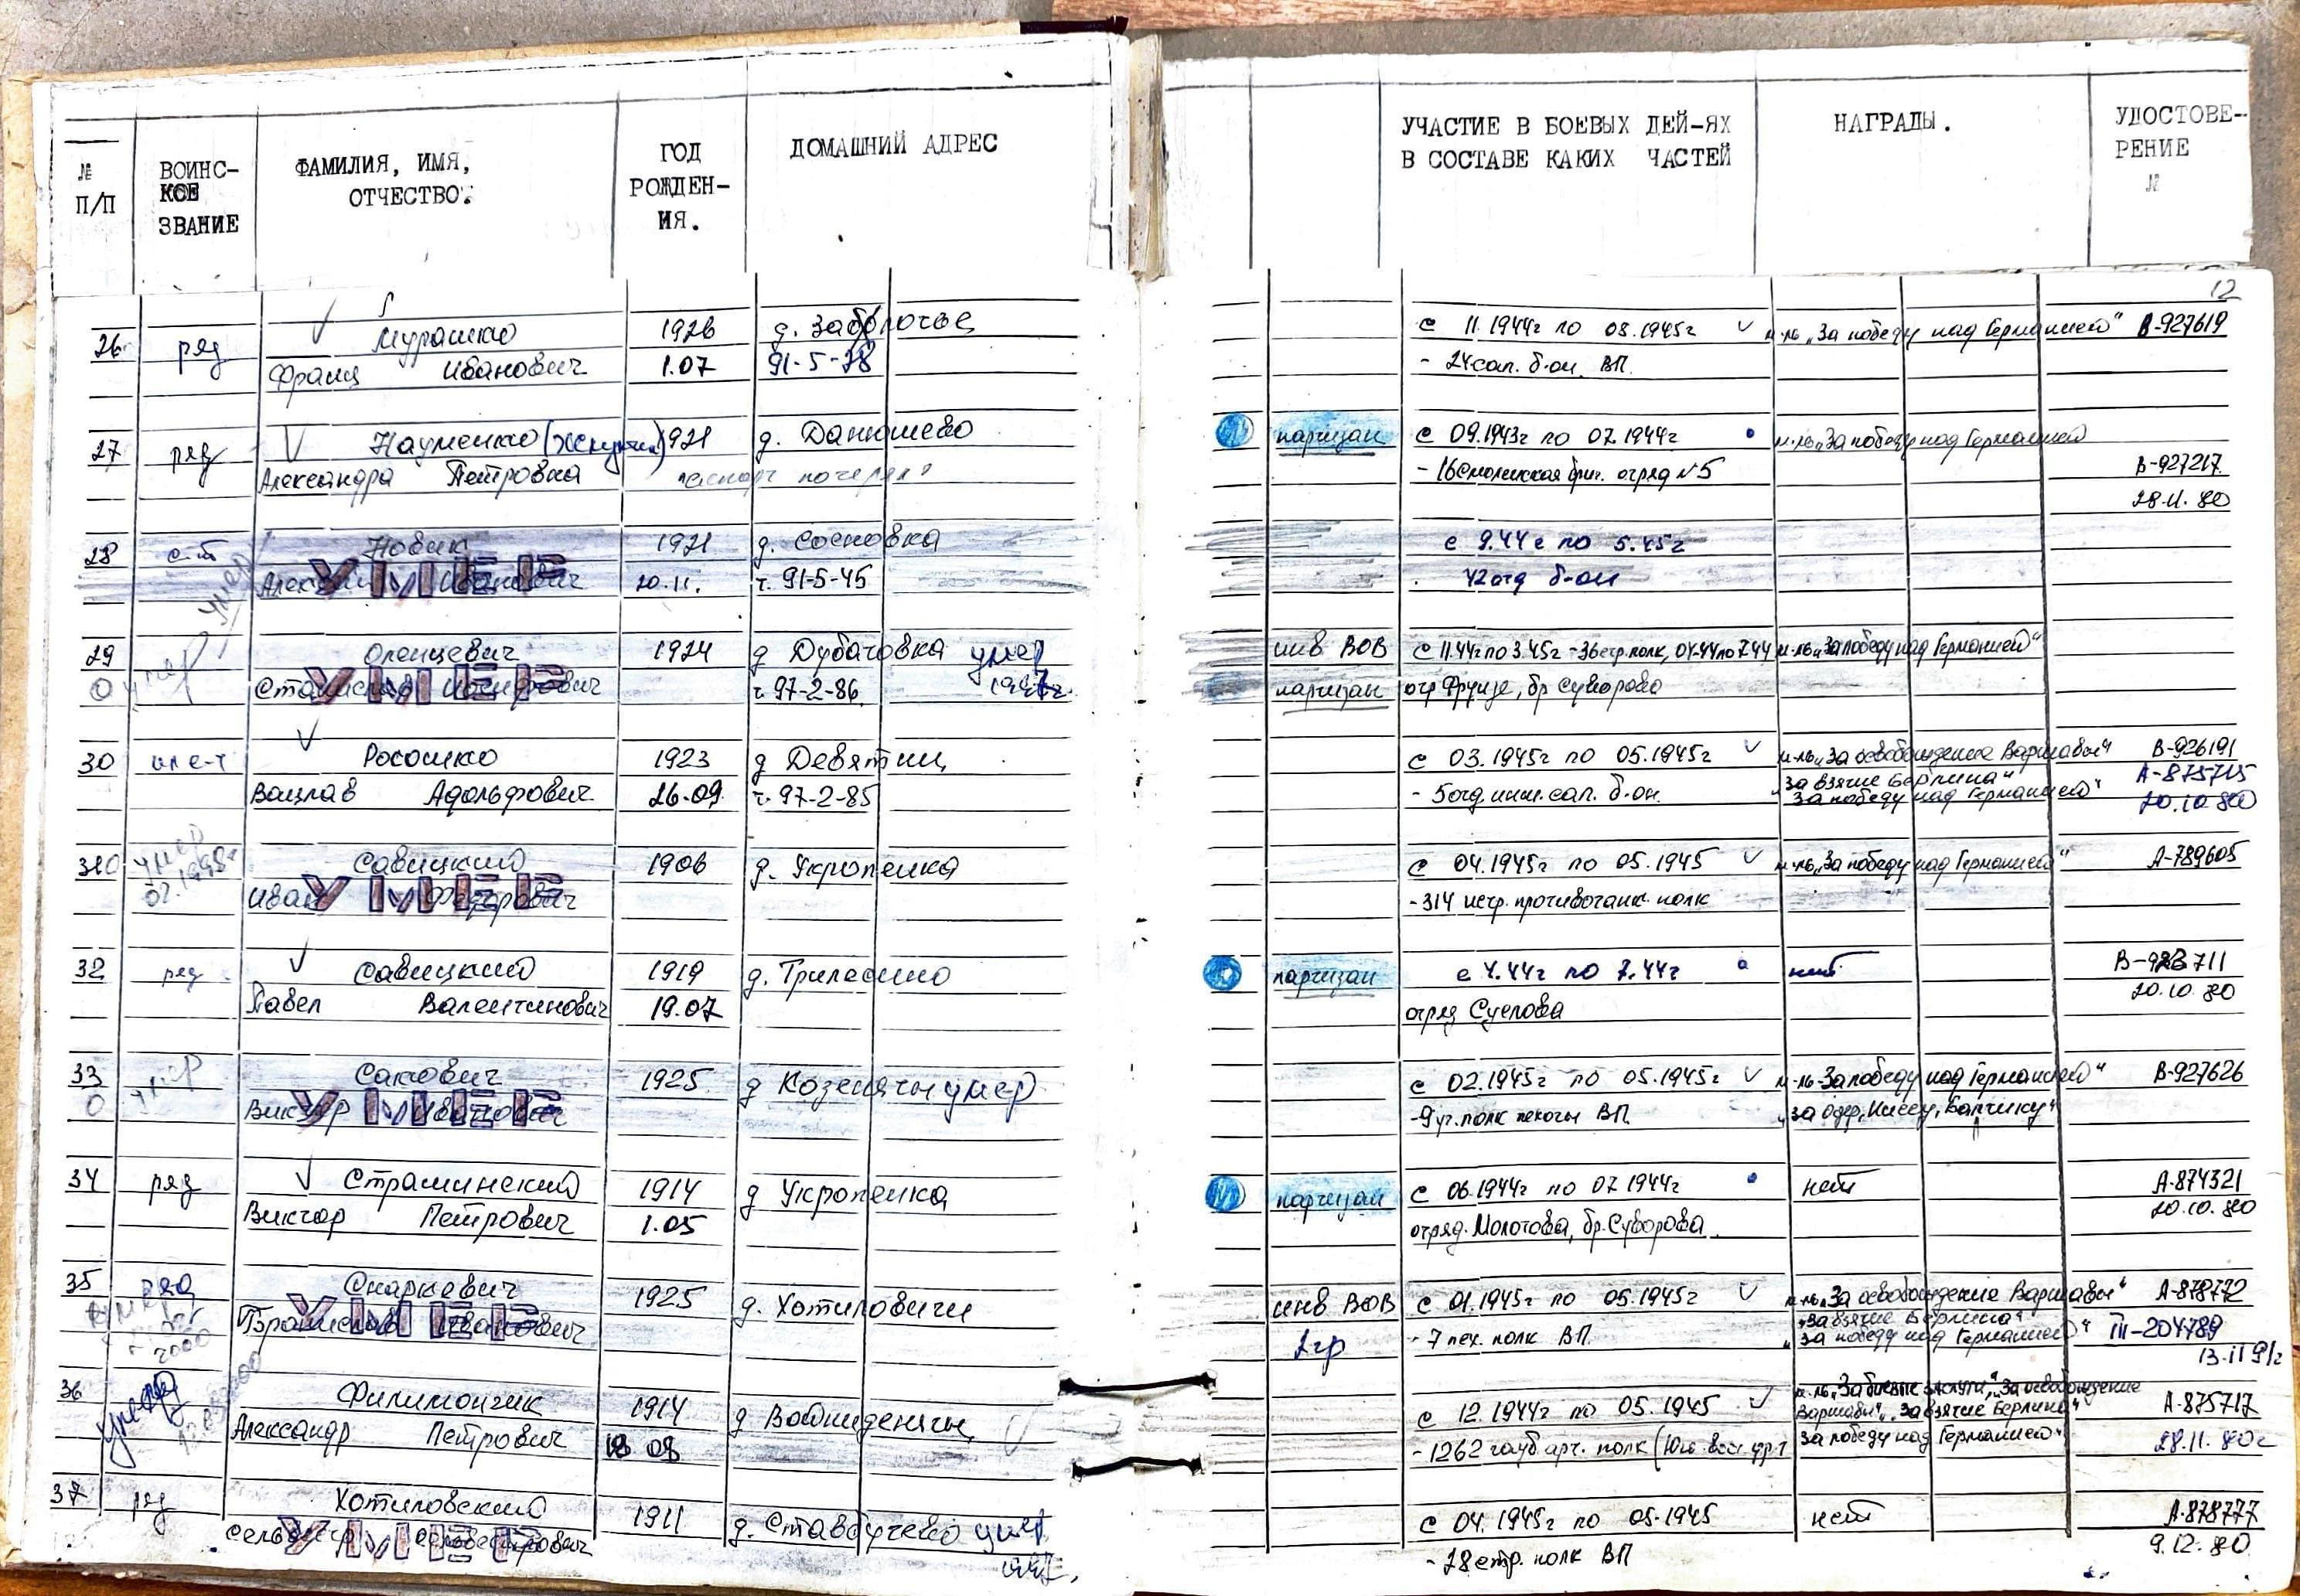 № П/П
ВОИНС- КОЕ ЗВАНИЕ
ФАМИЛИЯ, ИМЯ, ОТЧЕСТВО.
ГОД РОЖДЕН- ИЯ.
ДОМАШНИЙ АДРЕС
УЧАСТИЕ В БОЕВЫХ ДЕЙ-ЯХ В СОСТАВЕ КАКИХ ЧАСТЕЙ
НАГРАДЫ.
УДОСТОВЕ- РЕНИЕ №
12
26 ряд Мурашко 1926 д. Заболотье с 11.1944г по 08.1945г м-ль „За победу над Германией" В-927619
Франц Иванович 1.07 91-5-28 - 24 сап. б-он. ВП.
27 ряд Науменко 1921 д. Данюшево партизан с 09.1943г по 07.1944г м-ль „За победу над Германией
Александра Петровна паспорт потерян - 16 Смоленская бриг. отряд №5 В-927217
28.11.80
28 с-т Новик 1921 д. Сосновка с 9.44г по 5.45г
умер Иванович УМЕР 20.11. т. 91-5-45 42 отд б-он
29 Оленцевич 1924 д Дубатовка умер инв ВОВ с 11.44г по 3.45г - 36 стр. полк, 04.44 по 7.44 м-ль „За победу над Германией"
0 умер Станислав Иосифович УМЕР т. 97-2-86. партизан отр Фрунзе, бр Суворова
30 Росошко 1923 д Девятни с 03.1945г по 05.1945г м-ль „За освобождение Варшавы" В-926191
Вацлав Адольфович 26.09. т. 97-2-85 - 5 отд инж. сап. б-он. „За взятие Берлина" А-875715
„За победу над Германией" 20.10.80
31 0 умер Савицкий 1906 д. Укропенка с 04.1945г по 05.1945 м-ль „За победу над Германией" А-789605
Иван Федорович УМЕР - 314 истр. противотанк. полк
32 ряд Савицкий 1919 д. Трилесино партизан с 4.44г по 7.44г нет 711
Павел Валентинович 19.07 отряд 20.10.80
33 умер Сакович 1925 д умер с 02.1945г по 05.1945г м-ль За победу над Германией" В-927626
0 Виктор Иванович УМЕР - 9 полк пехоты ВП „За Одер, Ниссу, Балтику"
34 ряд Страшинский 1914 д Укропенка партизан с 06.1944г по 07.1944г нет А-874321
Виктор Петрович 1.05 отряд. Молотова, бр. Суворова. 20.10.80
35 ряд Скаркевич 1925 д. Хотиловичи инв ВОВ с 01.1945г по 05.1945г м-ль „За освобождение Варшавы" А-878772
умер 2000 Бранислав Иванович УМЕР 2гр - 7 пех. полк ВП. „За взятие Берлина"
„За победу над Германией" III-204789
13.II 91г
36 умер Филимончик 1914 д с 12.1944г по 05.1945 м-ль „За боевые заслуги", „За освобождение Варшавы", „За взятие Берлина" А-875717
Александр Петрович 08 - 1262 гауб арт. полк За победу над Германией" 28.11.80г
37 ряд Хотиловский 1911 д. умер с 04.1945г по 05.1945 нет А-878777
УМЕР - 28 стр. полк ВП 9.12.80